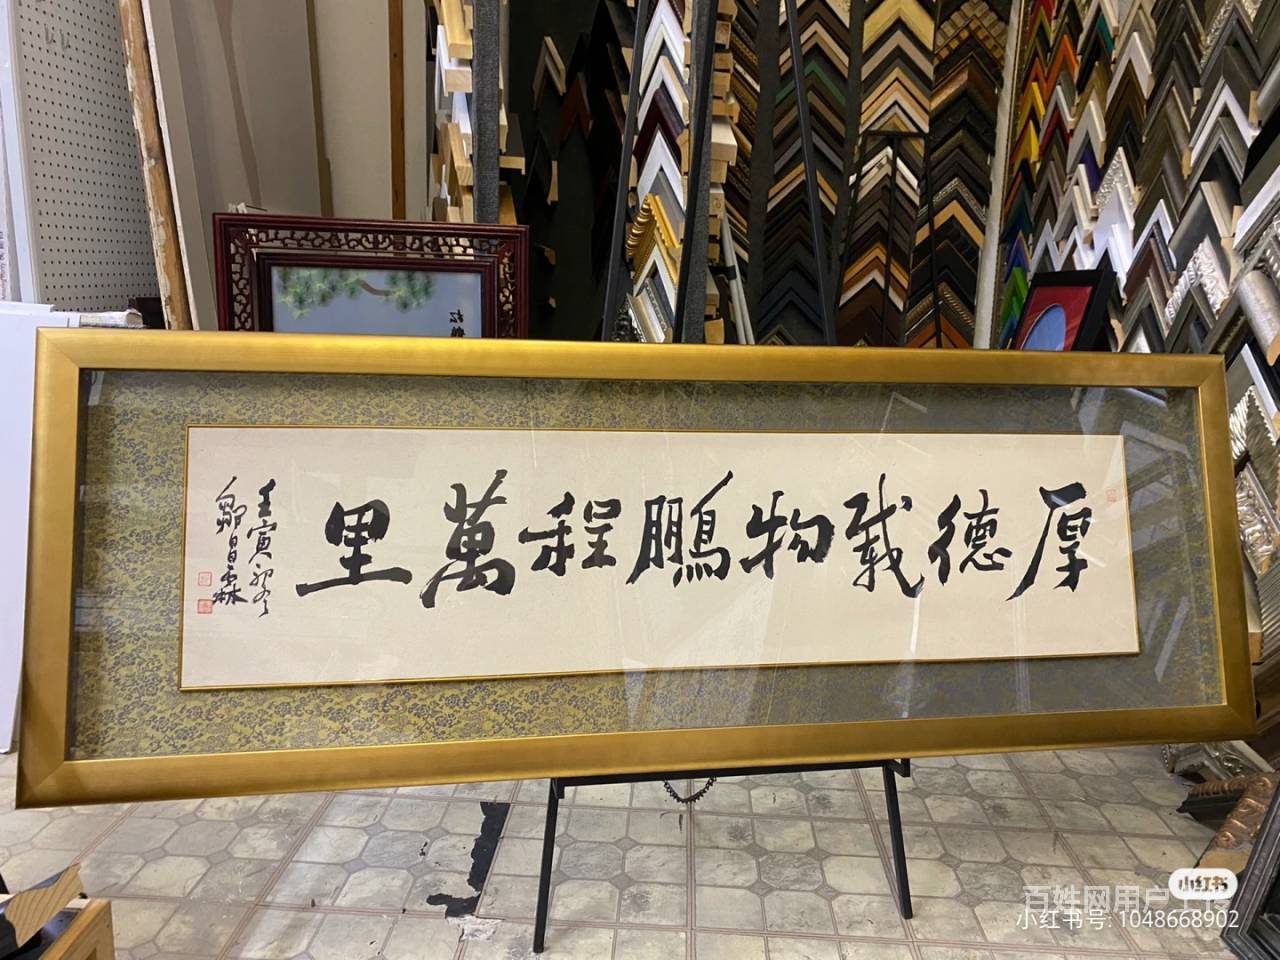 厚德載物鵬程萬里
壬寅初冬
鄒昌霖
松鶴
小红书
百姓网用户上传
小红书号: 1048668902